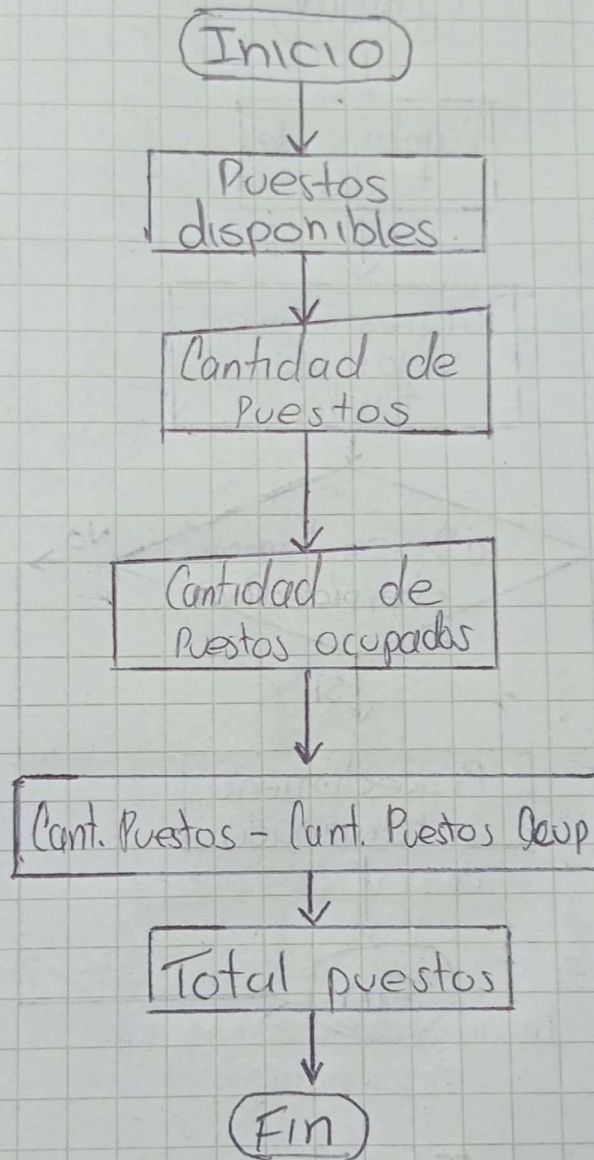 Inicio
Puestos
disponibles
Cantidad de
Puestos
Cantidad de
Puestos ocupados
Cant. Puestos - Cant. Puestos Ocup
Total puestos
Fin